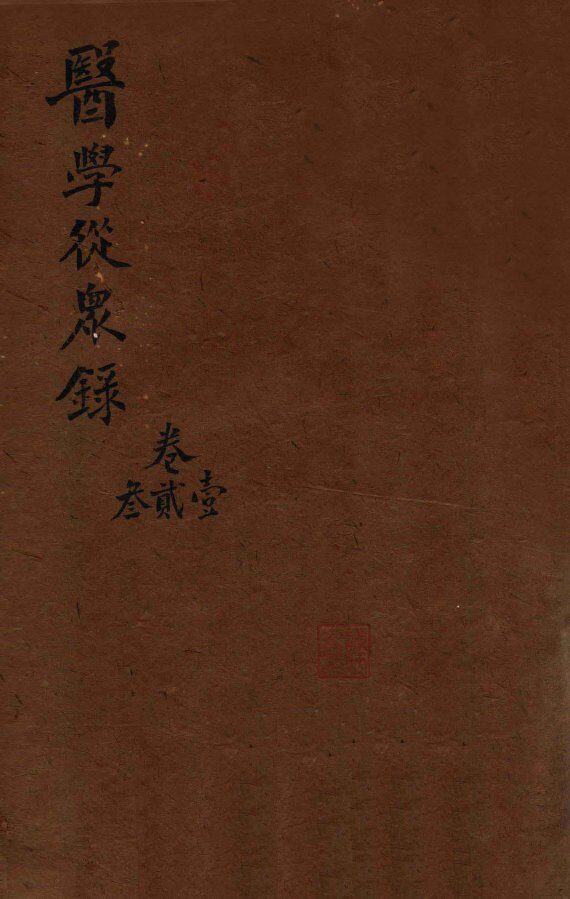 醫學從眾錄
卷
壹貳叁